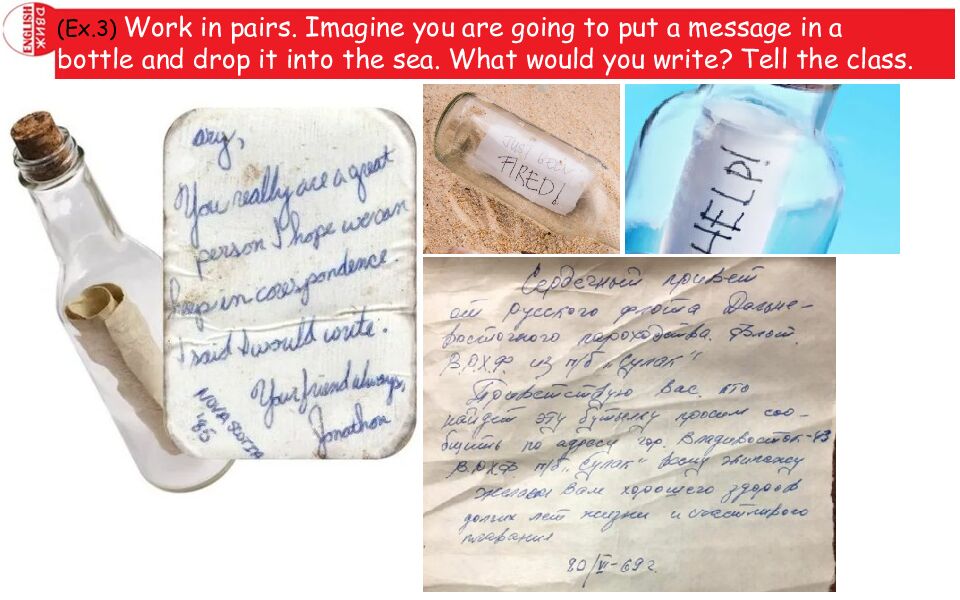 ENGLISH
ДВИЖ
(Ex.3) Work in pairs. Imagine you are going to put a message in a
bottle and drop it into the sea. What would you write? Tell the class.
ary,
You really are a great
person I hope we can
keep in correspondence.
I said I would write.
Your friend always,
Jonathon
NOVA SCOTIA
'85
JUST BEEN
FIRED!
HELP!
Сердечный привет
от русского флота Дальне-
восточного пароходства.
В.Р.Х.Ф из п/б „Сулак"
Приветствую Вас. кто
найдет эту бутылку просим соо-
бщить по адресу гор. Владивосток-43
В.Р.Х.Ф п/б „Сулак" всему экипажу
желаем Вам хорошего здоров
долгих лет жизни и счастливого
плавания
20/VI-69г.